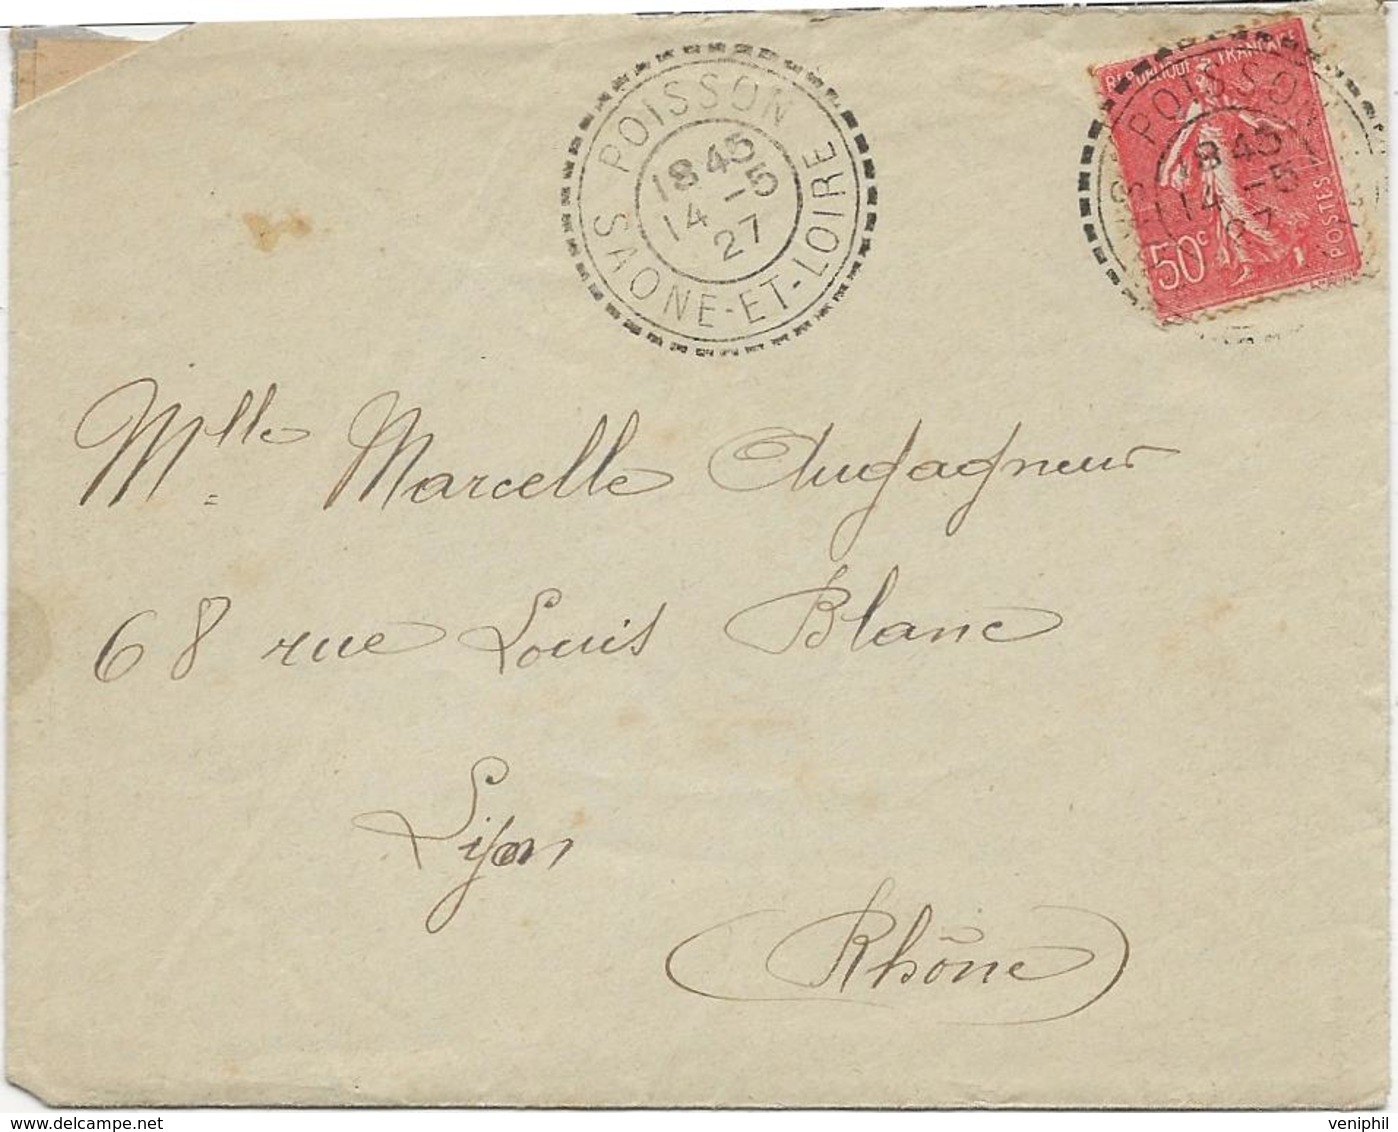 POISSON
SAONE-ET-LOIRE
18 45
14 -5
27
REPUBLIQUE FRANCAISE
POSTES
50c
POISSON
18 45
14 -5
27
Mlle Marcelle Augagneur
68 rue Louis Blanc
Lyon
(Rhône)
veniphil